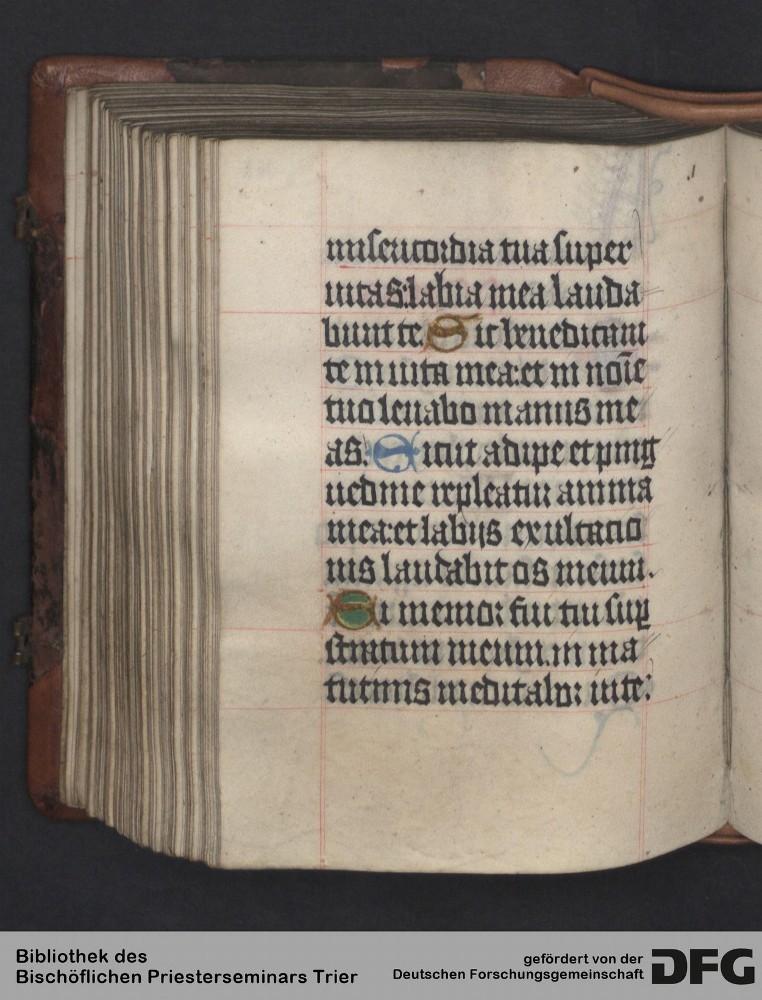 misericordia tua super
uitas:labia mea lauda
bunt te. Sic benedicam
te in uita mea:et in noīe
tuo leuabo manus me
as. Sicut adipe et ping
uedine repleatur anima
mea:et labijs exultatio
nis laudabit os meum.
Si memor fui tui sup
stratum meum.in ma
tutinis meditabor inte:
Bibliothek des
Bischöflichen Priesterseminars Trier
gefördert von der
Deutschen Forschungsgemeinschaft
DFG